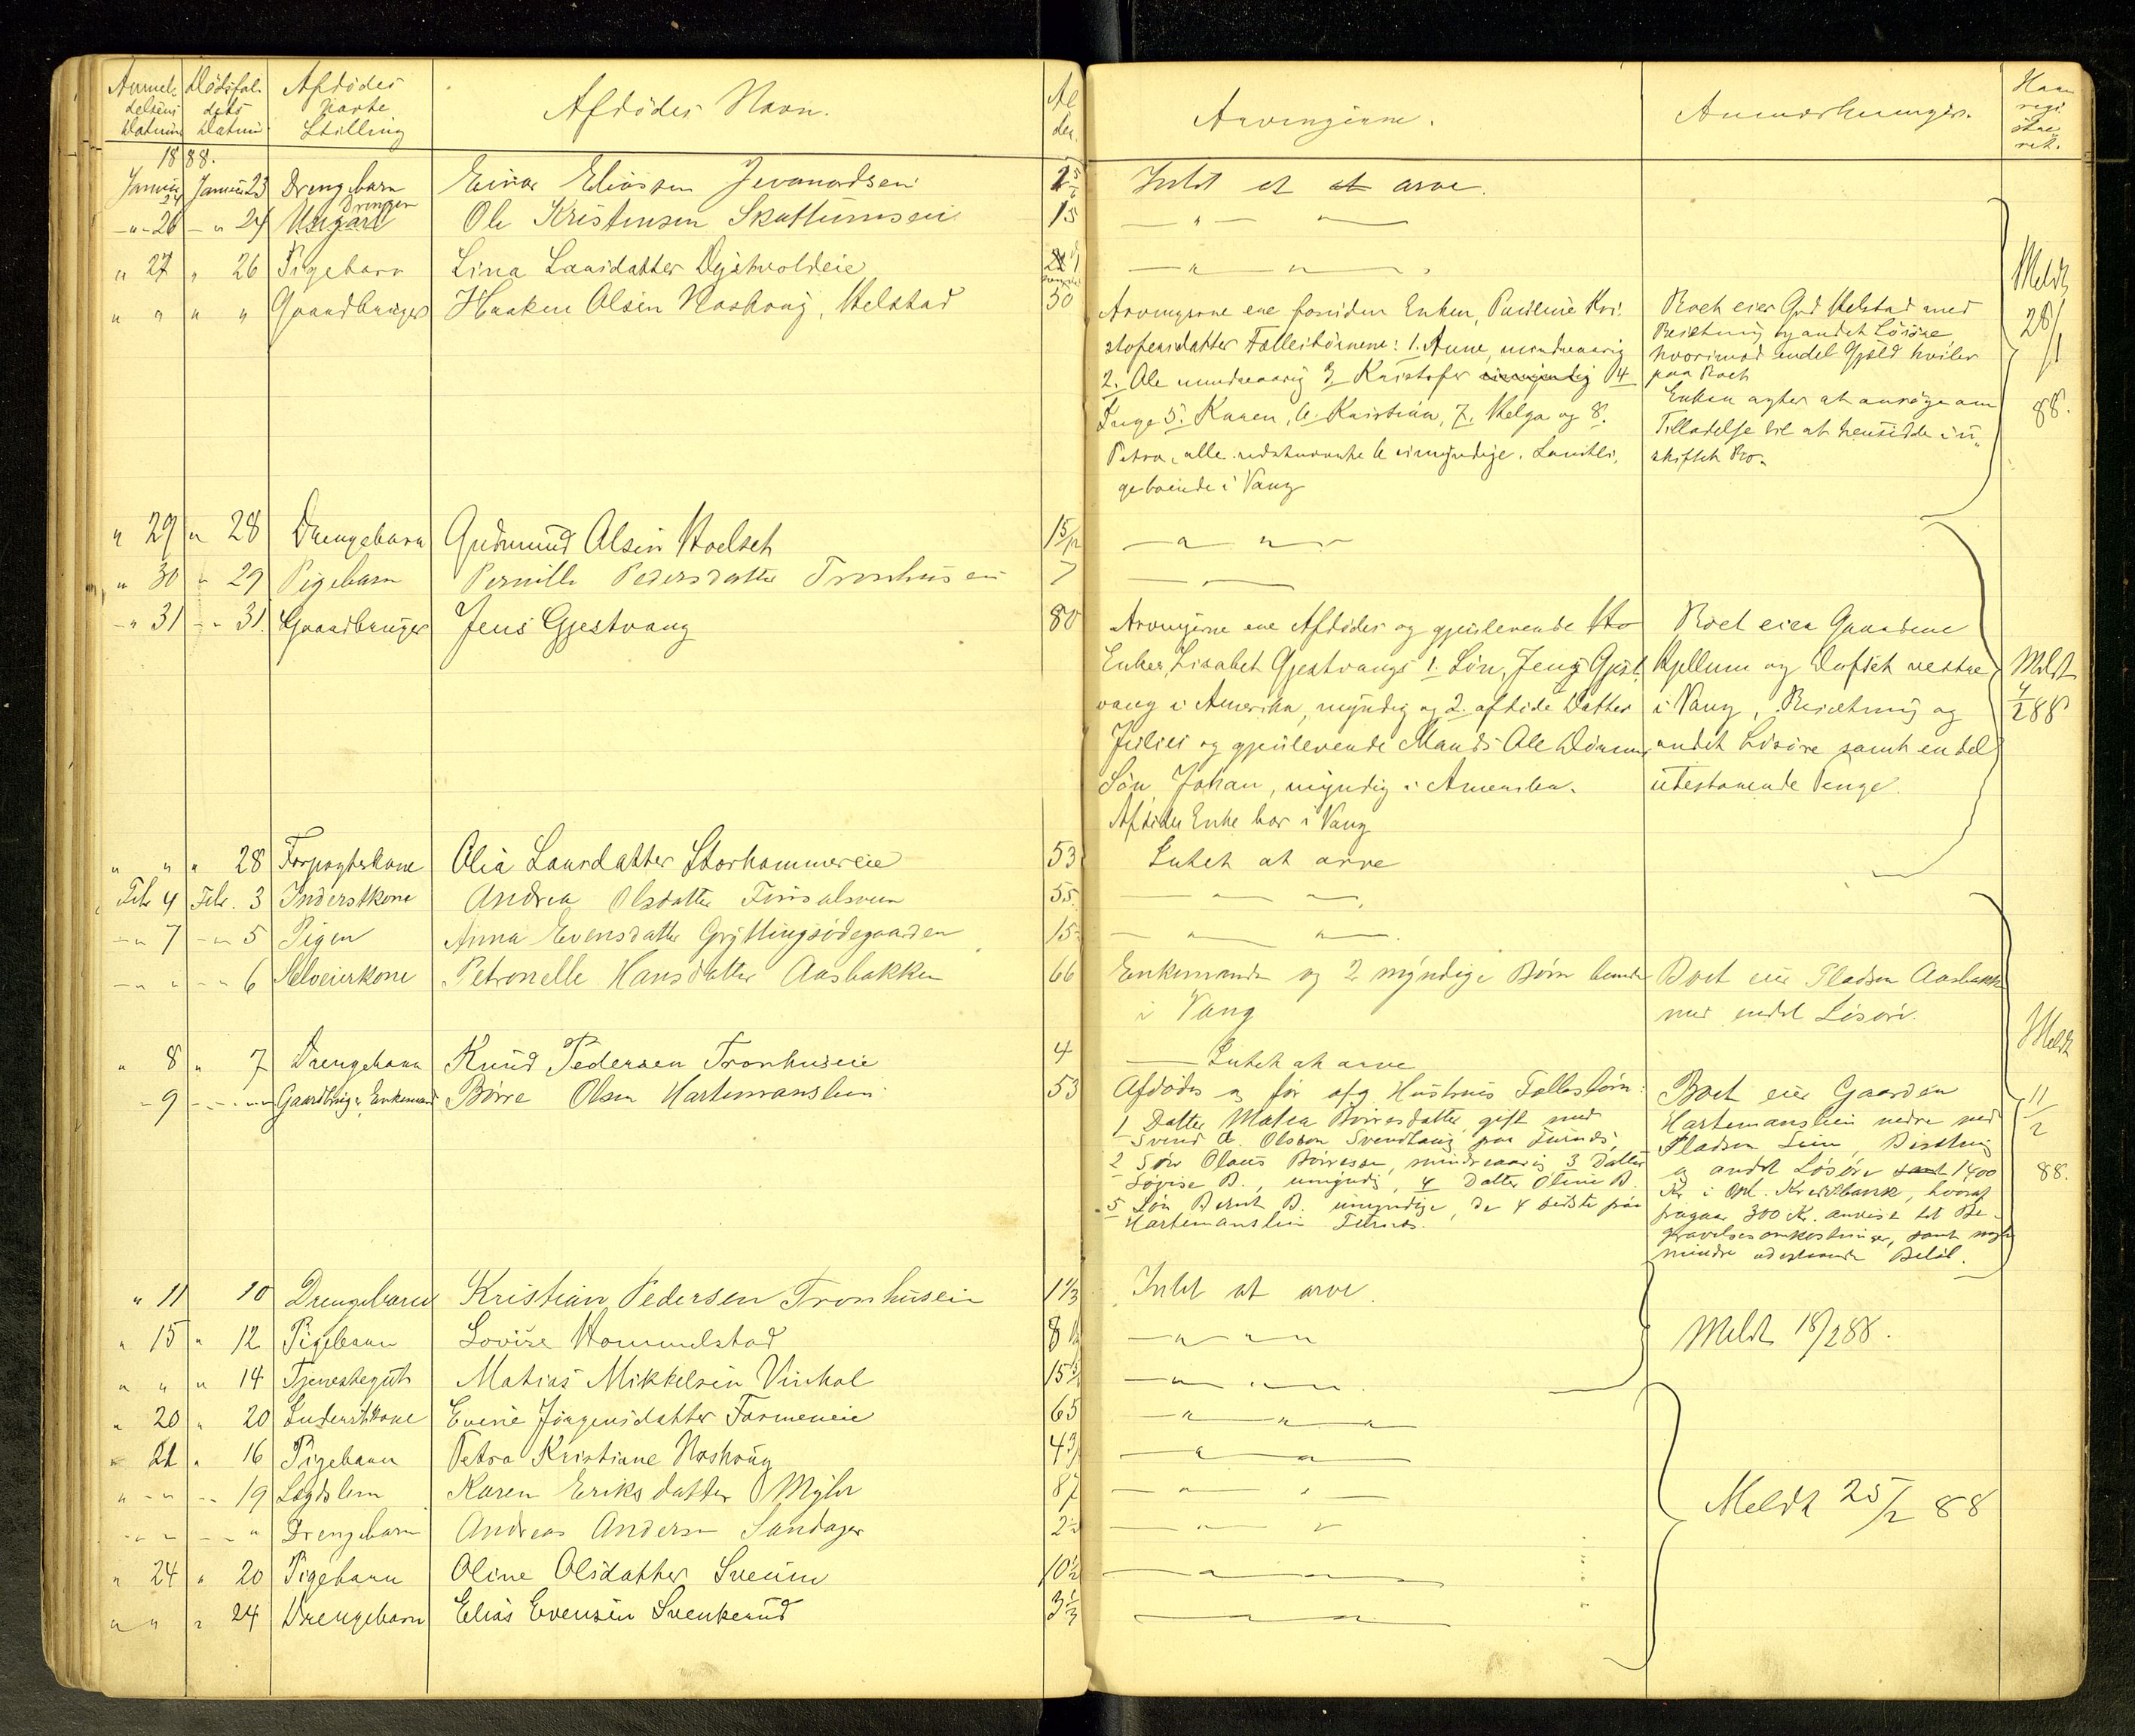 Anmel- Dödsfal- Afdödes Afdödes Navn. Al Arvingerne. Anmærkninger.
delsens dets Navn der.
Datum Datum Stilling
1888.
Januar 24 Januar 23 Drengebarn Einar Eliassen Intet at arve.
" 26 " 24 Drengen Ole Kristensen 15 " "
" 27 " 26 Pigebarn Lina Larsdatter " "
" " " " Gaardbruger Haaken Olsen Noshoug, Helstad 50 Arvingerne ere foruden Enken, Pauline Kri- Boet eier Grd Helstad med Meldt
stofersdatter Fællesbörnene: 1. Anne, mindreaarig Besætning og andet Lösöre, 28/1
2. Ole mindreaarig 3 Kristofer 4 hvorimod endel Gjæld hviler
paa Boet
Inge 5. Karen, 6. Kristian, 7. Helga og 8. Enken agter at ansöge om 88.
Petra, alle sidstnævnte 6 umyndige. Samtli- Tilladelse til at hensidde i u-
ge boende i Vang skiftet Bo.
" 29 " 28 Drengebarn Gudmund Olsen Hoelset 15/12 " "
" 30 " 29 Pigebarn Pernille Pedersdatter Tronhusei 7
" 31 " 31. Gaardbruger Jens Gjestvang 80 Arvingerne ere Afdödes og gjenlevende Boet eier Gaardene
Enkes, Lisabet Gjestvangs 1. Sön, Jens Gjest- Hjellum og Dufset vestre Meldt
vang i Amerika, myndig og 2. afdöde Datter i Vang, Besætning og 4/2 88
Julies og gjenlevende Mands Ole andet Lösöre samt en del
Sön Johan, myndig i Amerika. udestaaende Penge.
Afdödes Enke bor i Vang
" " " 28 Forpagterkone Olia Larsdatter Storhammereie 53 Intet at arve
Febr 4 Febr. 3 Inderstkone Andrea Olsdatter 55 " "
" 7 " 5 Pigen Anna Evensdatter Gryttingsödegaarden 15 " "
" " " 6 Selveierkone Petronelle Hansdatter Aasbakken 66 Enkemanden og 2 myndige Börn boende Boet eier Pladsen Aasbakken
i Vang med endel Lösöre.
" 8 " 7 Drengebarn Knud Pedersen Tronhuseie 4 Intet at arve Meldt
" 9 " " Gaardbruger, Enkemand Börre Olsen Hartemanslien 53 Afdödes og för afg. Hustrues Fællesbörn: Boet eier Gaarden 11/2
1 Datter Matea Börresdatter, gift med Hartemanslien nedre med
Svend A. Olsson paa Furnes, Pladsen Besætning
2 Sön Olaus Börresen, mindreaarig, 3 Datter og andet Lösöre samt 1400 88.
Lovise B., umyndig, 4 Datter Oline B. Kr i Opl. Kreditbank, hvoraf
5 Sön Bernt B. umyndige, de 4 sidste paa fragaar 300 Kr. anvist til Be-
Hartemanslien Furnes. gravelsesomkostninger, samt nogle
mindre udestaaende Belöb.
" 11 10 Drengebarn Kristian Pedersen Tronhusein 1 1/3 Intet at arve.
" 15 " 12 Pigebarn Lovise Hommelstad 8 " " Meldt 18/2 88.
" " " 14 Tjenestegut Matias Mikkelsen Vinhol 15 " "
" 20 " 20 Inderstkone Evene Jörgensdatter Farmeneie 65 " " "
" 21 " 16 Pigebarn Petra Kristiane Noshoug " "
" " " 19 Lægdslem Karen Eriksdatter Myhr 87 " "
" " " " Drengebarn Andreas Andersen Sandager " " Meldt 25/2 88
" 24 " 20 Pigebarn Oline Olsdatter Sveum 10 1/2 " "
" " " 24 Drengebarn Elias Evensen Svenkerud 3 1/3 " "